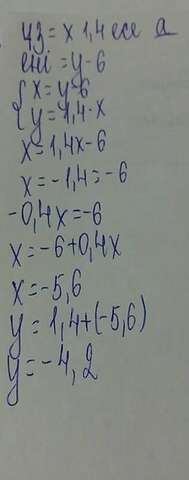 ұз = x 1,4 есе a
ені = y-6
{ x = y-6
y = 1,4·x
x = 1,4x-6
x = -1,4 = -6
-0,4x = -6
x = -6+0,4x
x = -5,6
y = 1,4+(-5,6)
y = -4,2